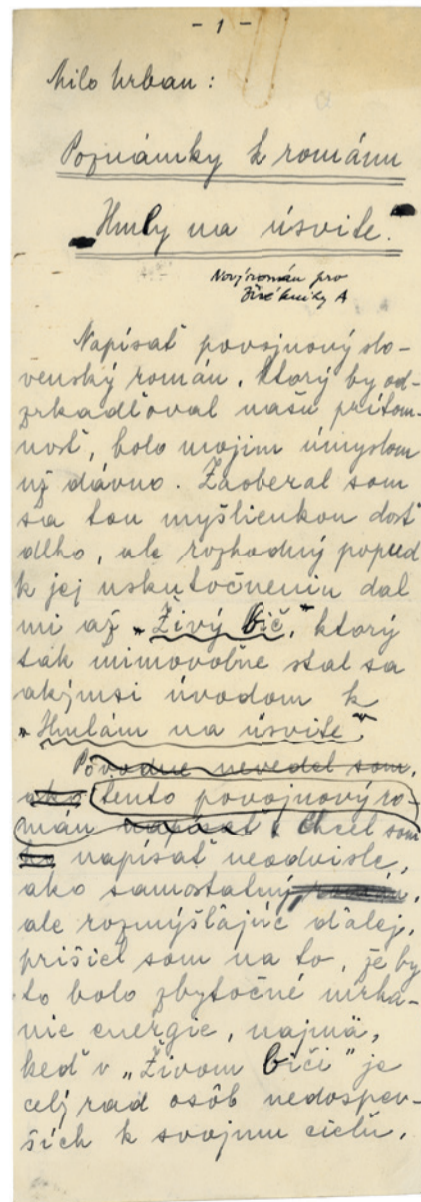 - 1 -
Milo Urban:
Poznámky k románu
"Hmly na úsvite."
Nový román pro
Živé knihy A
Napísať povojnový slo-
venský román, ktorý by od-
zrkadľoval našu prítom-
nosť, bolo mojim úmyslom
už dávno. Zaoberal som
sa tou myšlienkou dosť
dlho, ale rozhodný popud
k jej uskutočneniu dal
mi až "Živý bič," ktorý
tak mimovoľne stal sa
akýmsi úvodom k
"Hmlám na úsvite".
Pôvodne nevedel som,
ako tento povojnový ro-
mán napísať. Chcel som
ho napísať neodvisle,
ako samostatný
ale rozmýšľajúc ďalej,
prišiel som na to, že by
to bolo zbytočné mrha-
nie energie, najmä,
keď v „Živom biči" je
celý rad osôb nedospev-
ších k svojmu cieľu.